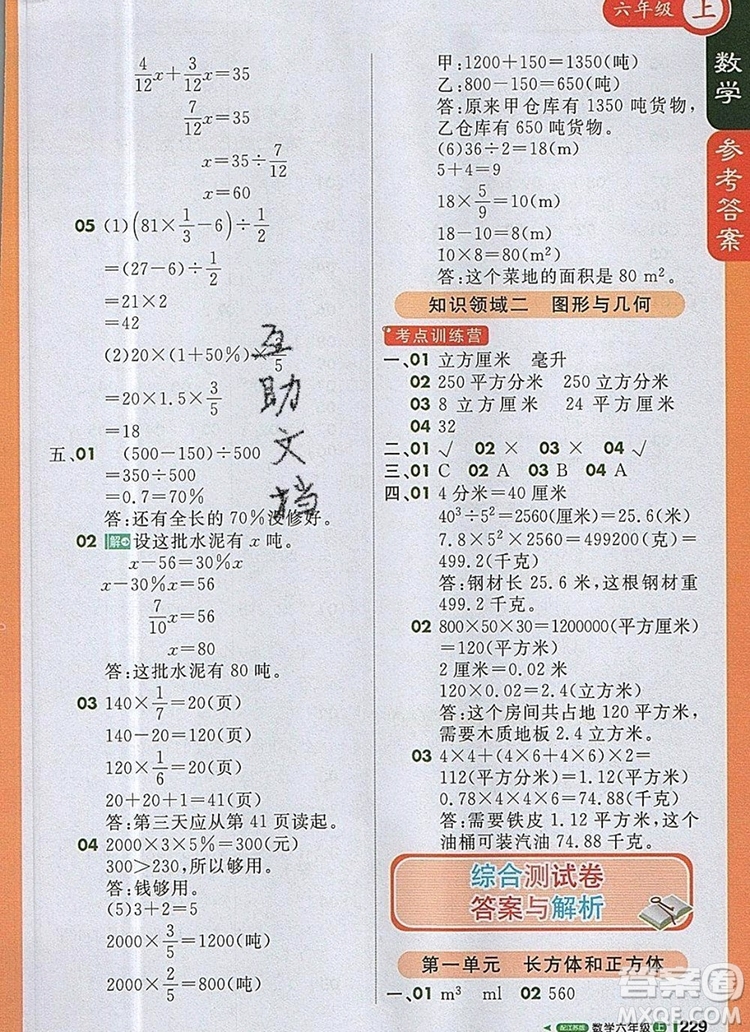 六年级 上
数学
参考答案
4/12x+3/12x=35
7/12x=35
x=35÷7/12
x=60
05 (1)(81×1/3-6)÷1/2
=(27-6)÷1/2
=21×2
=42
(2)20×(1+50%)×3/5
=20×1.5×3/5
=18
五、01 (500-150)÷500
=350÷500
=0.7=70%
答:还有全长的70%没修好。
02 解 设这批水泥有x吨。
x-56=30%x
x-30%x=56
7/10x=56
x=80
答:这批水泥有80吨。
03 140×1/7=20(页)
140-20=120(页)
120×1/6=20(页)
20+20+1=41(页)
答:第三天应从第41页读起。
04 2000×3×5%=300(元)
300>230,所以够用。
答:钱够用。
(5)3+2=5
2000×3/5=1200(吨)
2000×2/5=800(吨)
互助文档
甲:1200+150=1350(吨)
乙:800-150=650(吨)
答:原来甲仓库有1350吨货物,
乙仓库有650吨货物。
(6)36÷2=18(m)
5+4=9
18×5/9=10(m)
18-10=8(m)
10×8=80(m²)
答:这个菜地的面积是80 m²。
知识领域二 图形与几何
考点训练营
一、01 立方厘米 毫升
02 250平方分米 250立方分米
03 8立方分米 24平方分米
04 32
二、01 √ 02 × 03 × 04 √
三、01 C 02 A 03 A 04 B
四、01 4分米=40厘米
40³÷5²=2560(厘米)
7.8×5²×2560=499200(克)=
499.2(千克)
答:钢材长25.6米,这根钢材重
499.2千克。
02 800×50×30=1200000(平方厘米)
=120(平方米)
2厘米=0.02米
120×0.02=2.4(立方米)
答:这个房间共占地120平方米,
需要木质地板2.4立方米。
03 4×4+(4×6+4×6)×2=
112(平方分米)=1.12(平方米)
0.78×4×4×6=74.88(千克)
答:需要铁皮1.12平方米,这个
油桶可装汽油74.88千克。
综合测试卷
答案与解析
第一单元 长方体和正方体
一、01 m³ ml 02 560
配江苏版 数学六年级 上 229
答案圈